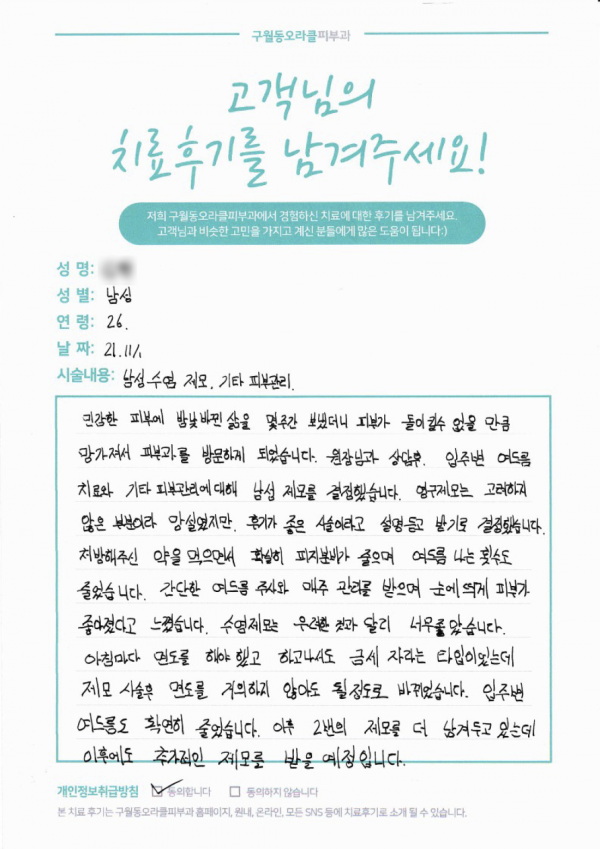 구월동오라클피부과
고객님의
치료후기를 남겨주세요!
저희 구월동오라클피부과에서 경험하신 치료에 대한 후기를 남겨주세요.
고객님과 비슷한 고민을 가지고 계신 분들에게 많은 도움이 됩니다:)
성 명:
성 별: 남성
연 령: 26.
날 짜: 21.11/1
시술내용: 남성수염 제모. 기타 피부관리.
민감한 피부에 밤낮바뀐 삶을 몇주간 보냈더니 피부가 돌이킬수 없을 만큼
망가져서 피부과를 방문하게 되었습니다. 원장님과 상담후. 입주변 여드름
치료와 기타 피부관리에 대해 남성 제모를 결정했습니다. 영구제모는 고려하지
않은 부분이라 망설였지만. 후기가 좋은 시술이라고 설명듣고 받기로 결정했습니다.
처방해주신 약을 먹으면서 확실히 피지분비가 줄으며 여드름 나는 횟수도
줄었습니다. 간단한 여드름 주사와 매주 관리를 받으며 눈에 띄게 피부가
좋아졌다고 느꼈습니다. 수염제모는 우려한 것과 달리 너무 좋았습니다.
아침마다 면도를 해야 했고 하고나서도 금세 자라는 타입이었는데
제모 시술후 면도를 거의하지 않아도 될정도로 바뀌었습니다. 입주변
여드름도 확연히 줄었습니다. 이후 2번의 제모를 더 남겨두고 있는데
이후에도 추가적인 제모를 받을 예정입니다.
개인정보취급방침 ☑ 동의합니다 ☐ 동의하지 않습니다
본 치료 후기는 구월동오라클피부과 홈페이지, 원내, 온라인, 모든 SNS 등에 치료후기로 소개 될 수 있습니다.